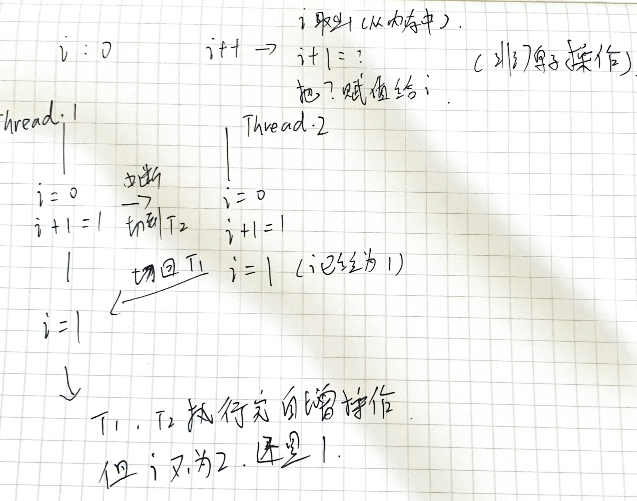 i : 0
i++ → i取出 (从内存中).
i+1 = ?
把?赋值给i.
(非原子操作)
Thread.1
Thread.2
i = 0
中断
→
i = 0
i+1 = 1
切到T2
i+1 = 1
切回T1
i = 1 (i已经为1)
i = 1
T1. T2 执行完自增操作.
但i不为2. 还是1.